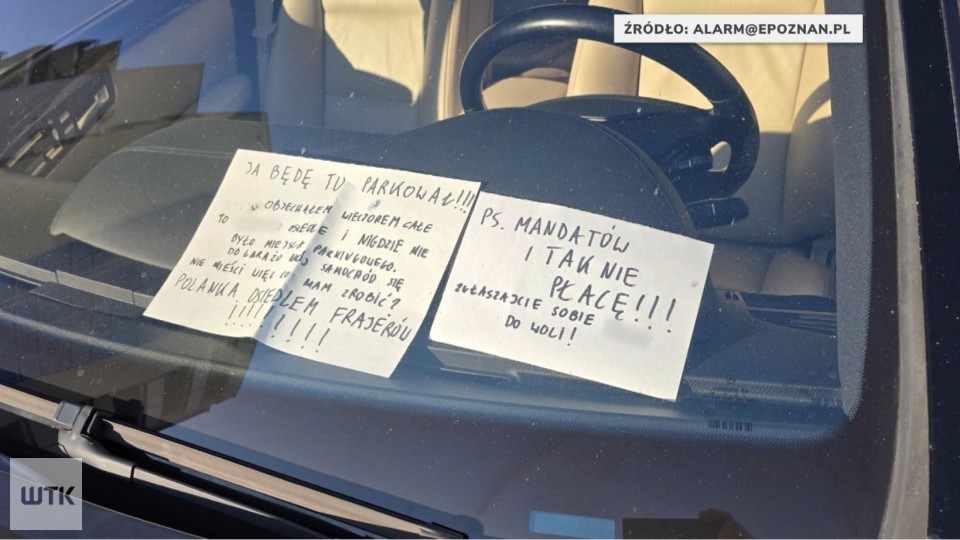 ŹRÓDŁO: ALARM@EPOZNAN.PL
JA BĘDĘ TU PARKOWAŁ!!!
OBJECHAŁEM WIECZOREM CAŁE
TO OSIEDLE I NIGDZIE NIE
BYŁO MIEJSCA PARKINGOWEGO.
DO GARAŻU MÓJ SAMOCHÓD SIĘ
NIE MIEŚCI WIĘC CO MAM ZROBIĆ?
POLANKA OSIEDLEM FRAJERÓW
!!!!!!!!!
PS. MANDATÓW
I TAK NIE
PŁACĘ!!!
ZGŁASZAJCIE SOBIE
DO WOLI!
WTK